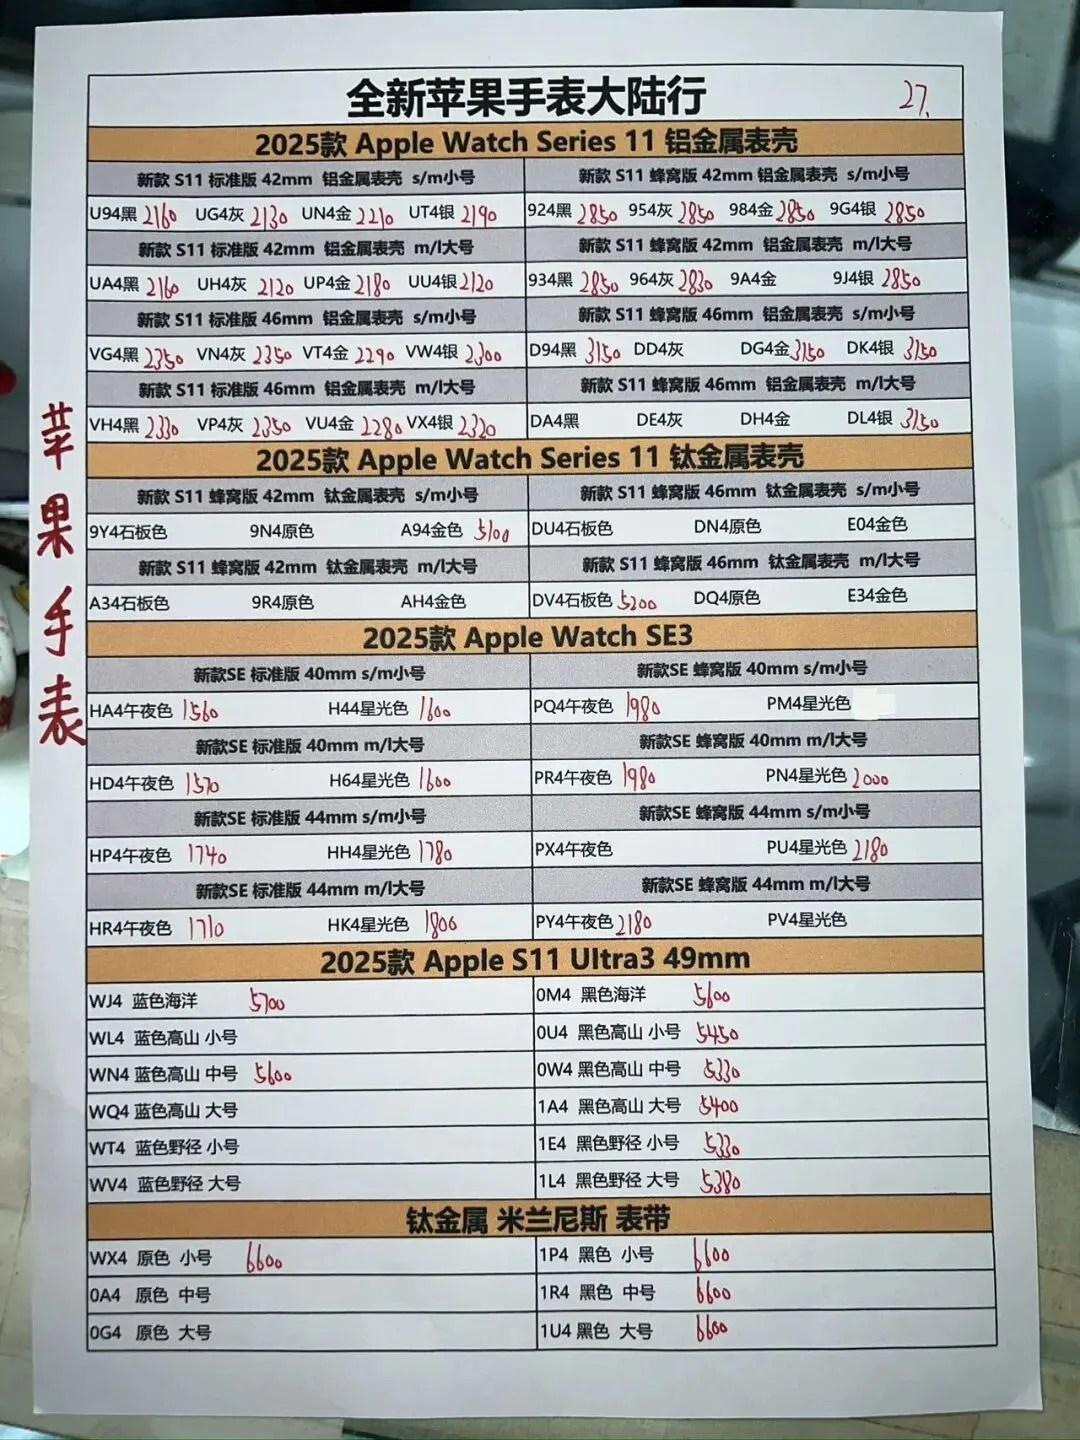 全新苹果手表大陆行 27.
2025款 Apple Watch Series 11 铝金属表壳
新款 S11 标准版 42mm 铝金属表壳 s/m小号 新款 S11 蜂窝版 42mm 铝金属表壳 s/m小号
U94黑 2160 UG4灰 2130 UN4金 2210 UT4银 2190 924黑 2850 954灰 2850 984金 2850 9G4银 2850
新款 S11 标准版 42mm 铝金属表壳 m/l大号 新款 S11 蜂窝版 42mm 铝金属表壳 m/l大号
UA4黑 2160 UH4灰 2120 UP4金 2180 UU4银 2120 934黑 2850 964灰 2830 9A4金 9J4银 2850
新款 S11 标准版 46mm 铝金属表壳 s/m小号 新款 S11 蜂窝版 46mm 铝金属表壳 s/m小号
VG4黑 2350 VN4灰 2350 VT4金 2290 VW4银 2300 D94黑 3150 DD4灰 DG4金 3150 DK4银 3150
新款 S11 标准版 46mm 铝金属表壳 m/l大号 新款 S11 蜂窝版 46mm 铝金属表壳 m/l大号
VH4黑 2330 VP4灰 2350 VU4金 2280 VX4银 2320 DA4黑 DE4灰 DH4金 DL4银 3150
2025款 Apple Watch Series 11 钛金属表壳
新款 S11 蜂窝版 42mm 钛金属表壳 s/m小号 新款 S11 蜂窝版 46mm 钛金属表壳 s/m小号
9Y4石板色 9N4原色 A94金色 5100 DU4石板色 DN4原色 E04金色
新款 S11 蜂窝版 42mm 钛金属表壳 m/l大号 新款 S11 蜂窝版 46mm 钛金属表壳 m/l大号
A34石板色 9R4原色 AH4金色 DV4石板色 5200 DQ4原色 E34金色
2025款 Apple Watch SE3
新款SE 标准版 40mm s/m小号 新款SE 蜂窝版 40mm s/m小号
HA4午夜色 1560 H44星光色 1600 PQ4午夜色 1980 PM4星光色
新款SE 标准版 40mm m/l大号 新款SE 蜂窝版 40mm m/l大号
HD4午夜色 1570 H64星光色 1600 PR4午夜色 1980 PN4星光色 2000
新款SE 标准版 44mm s/m小号 新款SE 蜂窝版 44mm s/m小号
HP4午夜色 1740 HH4星光色 1780 PX4午夜色 PU4星光色 2180
新款SE 标准版 44mm m/l大号 新款SE 蜂窝版 44mm m/l大号
HR4午夜色 1710 HK4星光色 1800 PY4午夜色 2180 PV4星光色
2025款 Apple S11 Ultra3 49mm
WJ4 蓝色海洋 5700 0M4 黑色海洋 5600
WL4 蓝色高山 小号 0U4 黑色高山 小号 5450
WN4 蓝色高山 中号 5600 0W4 黑色高山 中号 5330
WQ4 蓝色高山 大号 1A4 黑色高山 大号 5400
WT4 蓝色野径 小号 1E4 黑色野径 小号 5330
WV4 蓝色野径 大号 1L4 黑色野径 大号 5380
钛金属 米兰尼斯 表带
WX4 原色 小号 6600 1P4 黑色 小号 6600
0A4 原色 中号 1R4 黑色 中号 6600
0G4 原色 大号 1U4 黑色 大号 6600
苹果手表